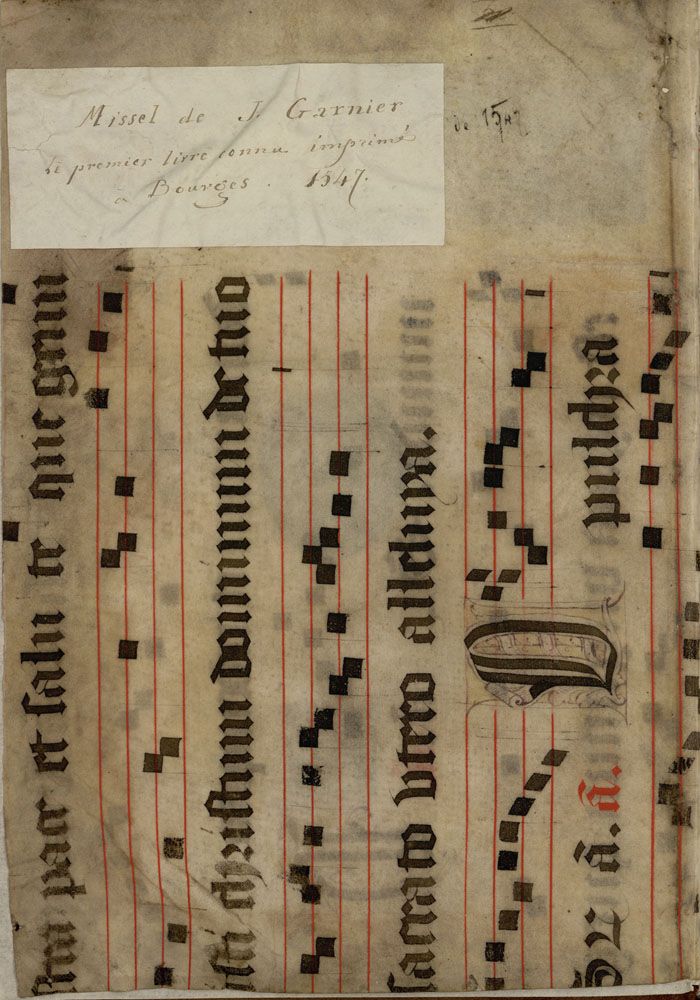 Missel de J. Garnier
le premier livre connu imprimé
a Bourges . 1547.
de 1547
pace et salu te que genui
isti christum dominum de tuo
sacrato vtero alleluya.
ā. ā. pulchra